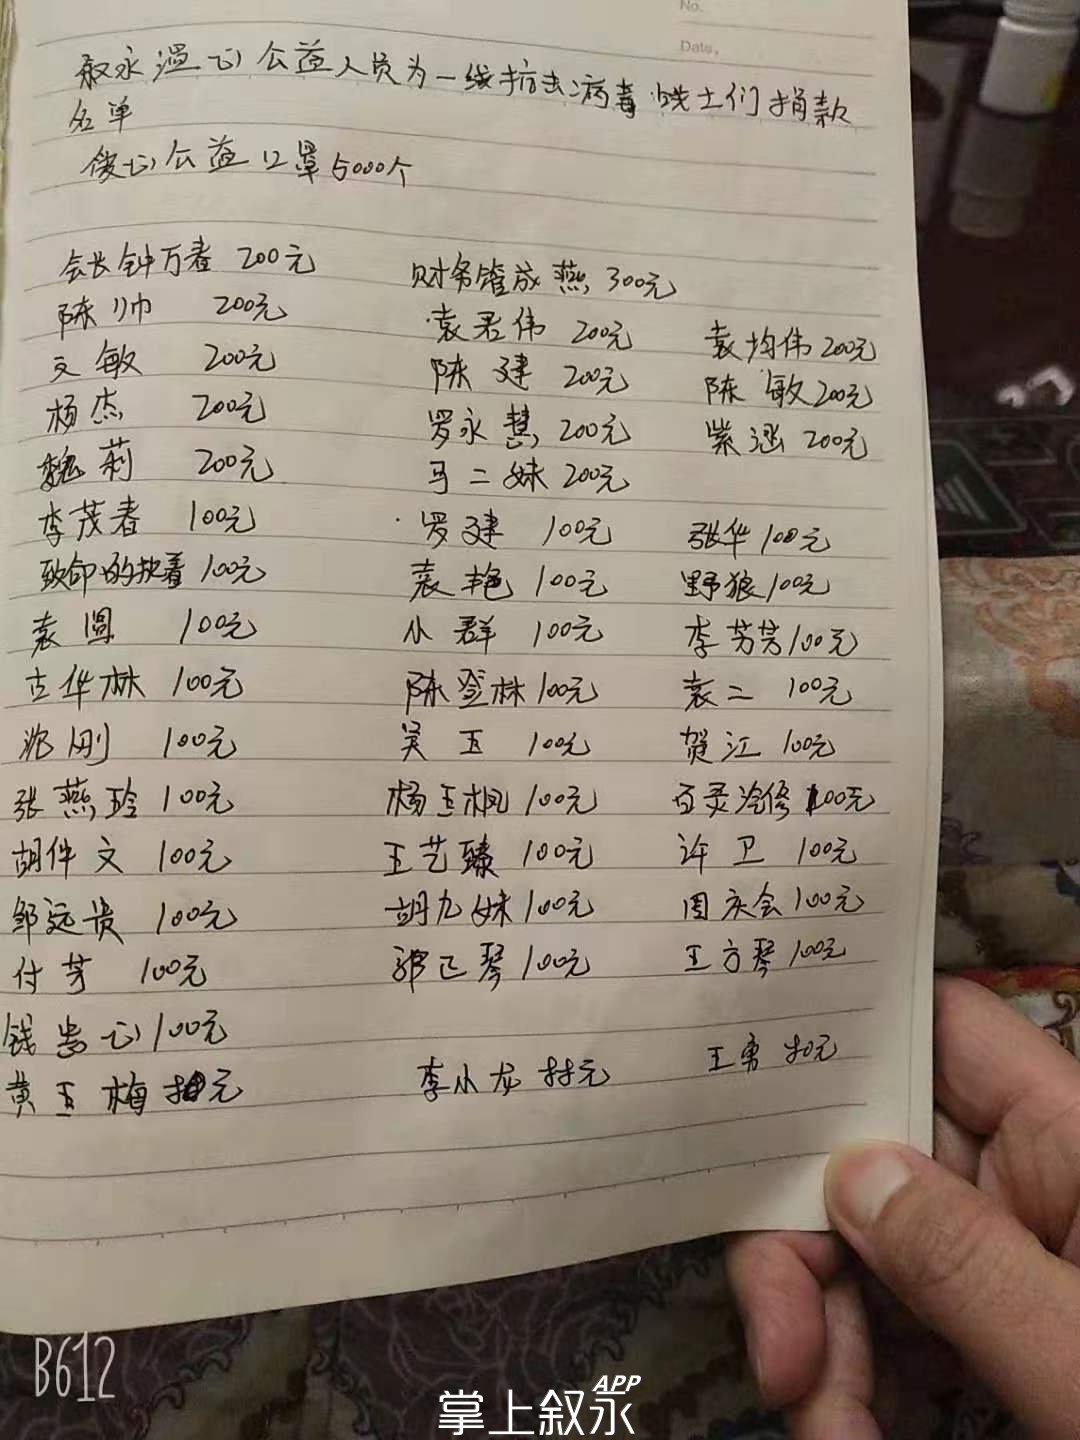 No.
Date.
叙永温心公益人员为一线抗击病毒战士们捐款
名单
公益口罩5000个
会长钟万春 200元 财务管成燕 300元
陈帅 200元 袁君伟 200元 袁均伟 200元
文敏 200元 陈建 200元 陈敏 200元
杨杰 200元 罗永慧 200元 紫涵 200元
魏莉 200元 马二妹 200元
李茂春 100元 罗建 100元 张华 100元
致命的执着 100元 袁艳 100元 野狼 100元
袁圆 100元 小群 100元 李芳芳 100元
古华林 100元 陈登林 100元 袁二 100元
刚 100元 吴玉 100元 贺江 100元
张燕玲 100元 杨玉枫 100元 百灵冷修 100元
胡件文 100元 王艺臻 100元 许卫 100元
邹远贵 100元 胡九妹 100元 周庆会 100元
付芳 100元 郭正琴 100元 王方琴 100元
钱忠心 100元
黄玉梅 元 李小龙 元 王勇 元
B612
掌上叙永APP